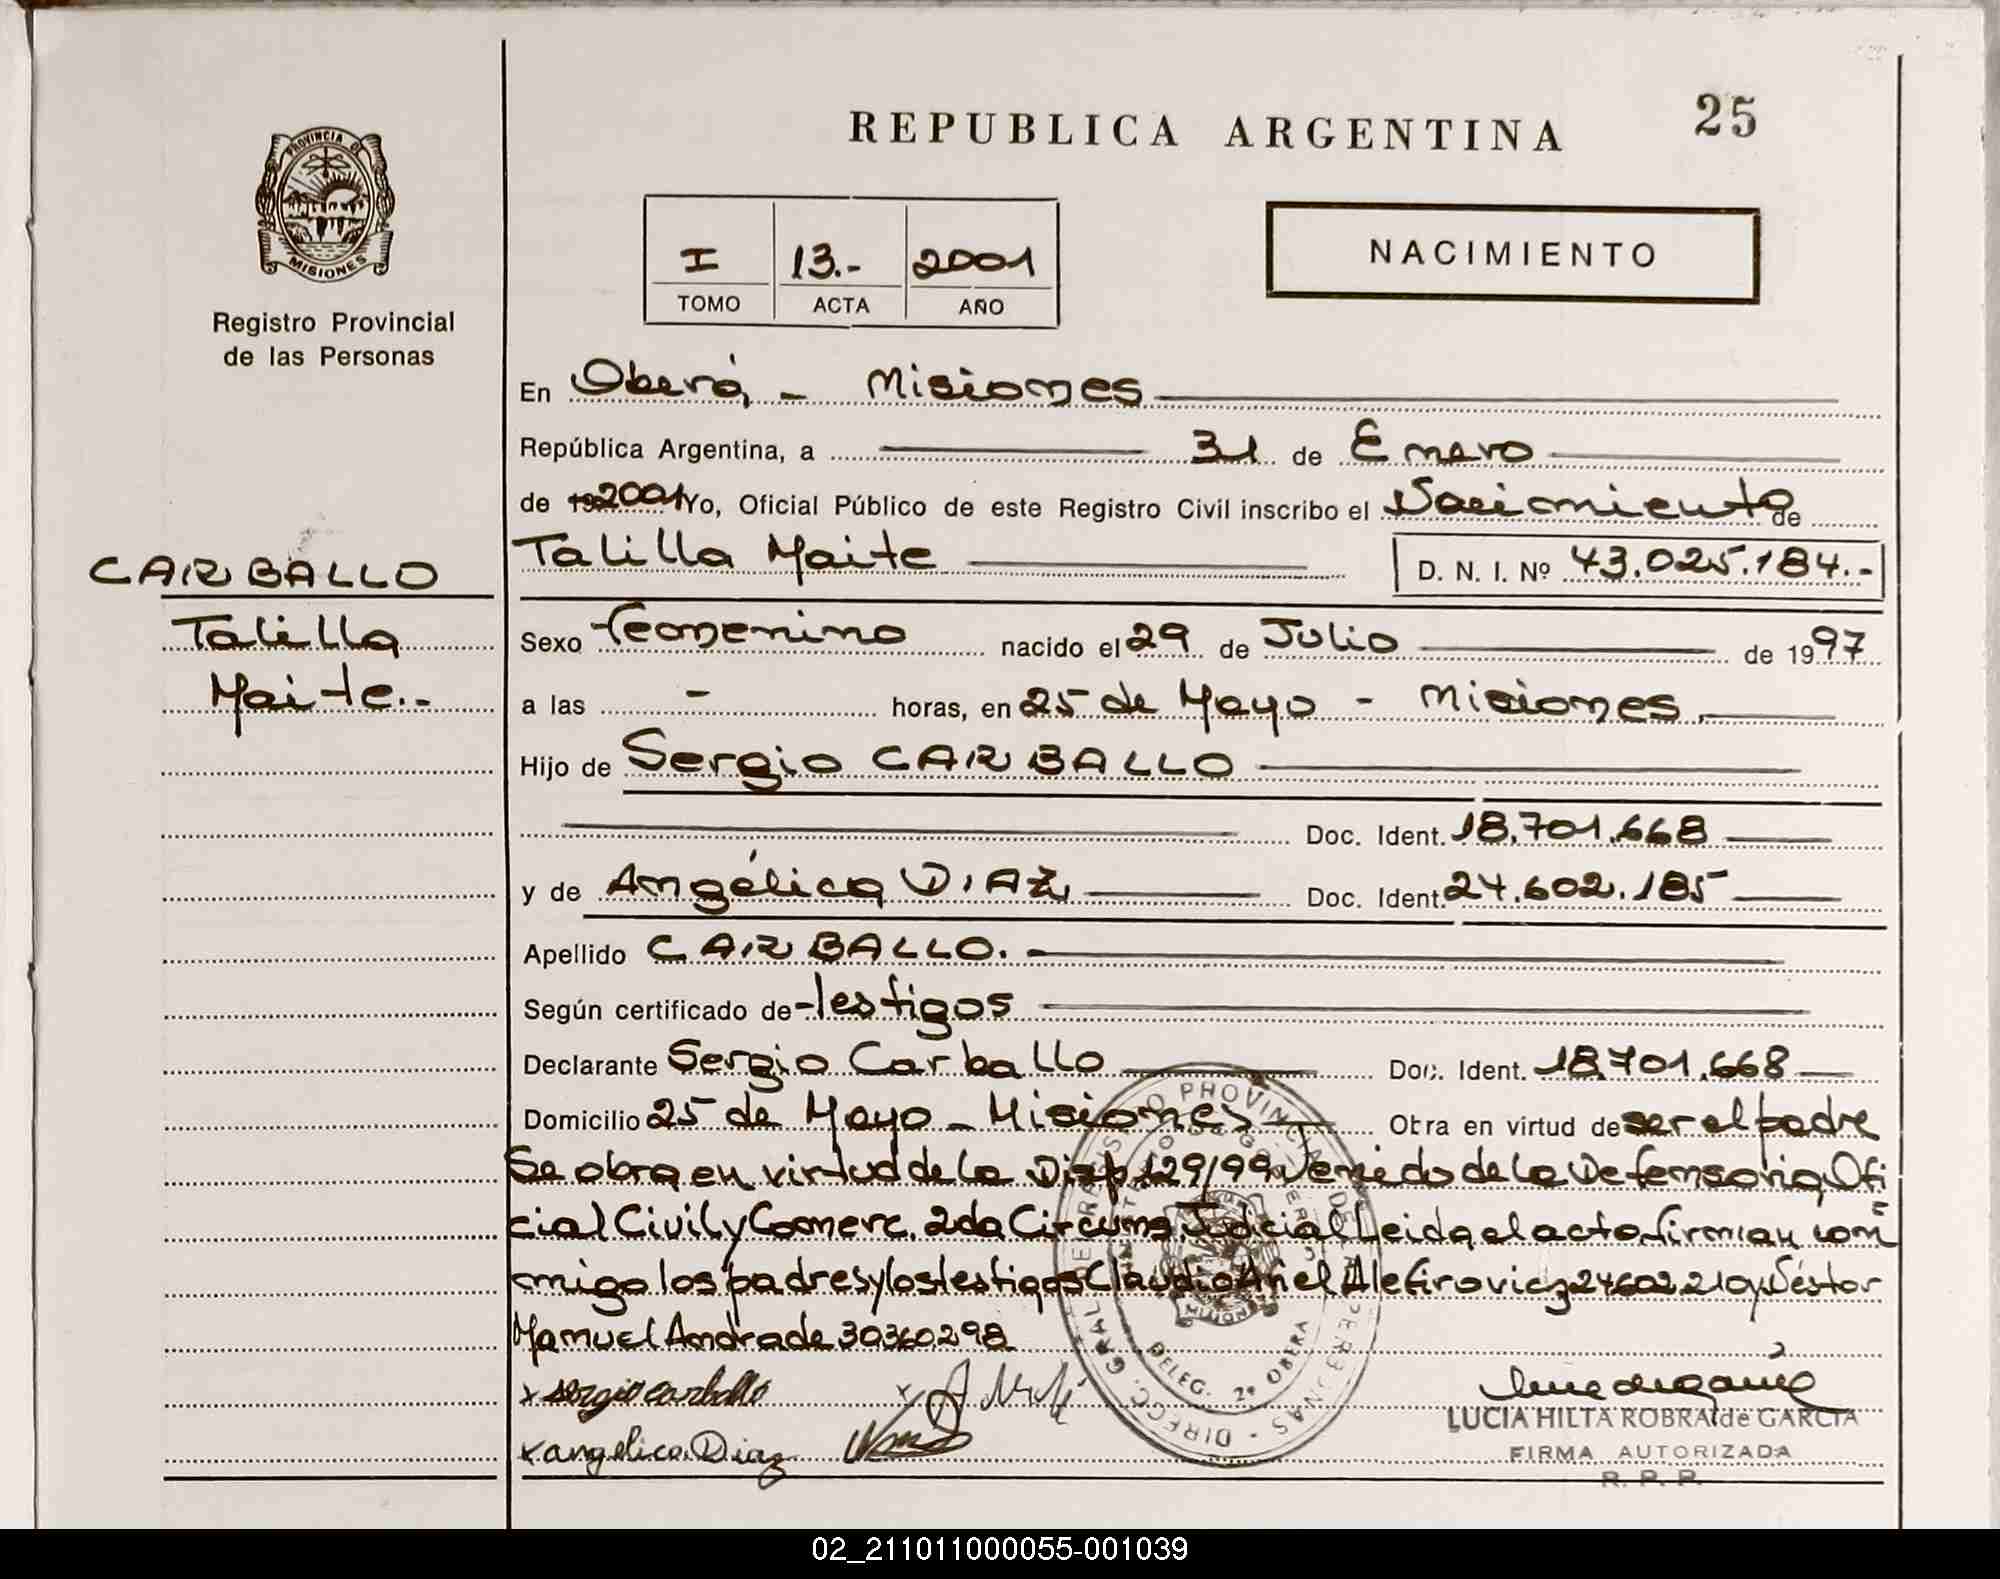 25
REPUBLICA ARGENTINA
PROVINCIA DE
MISIONES
Registro Provincial
de las Personas
NACIMIENTO
I 13.- 2001
TOMO ACTA AÑO
En Oberá, - Misiones
República Argentina, a 31 de Enero
de 192001 Yo, Oficial Público de este Registro Civil inscribo el Nacimiento de
Talilla Maite D. N. I. Nº 43.025.184.-
CARBALLO
Talilla
Maite.-
Sexo femenino nacido el 29 de Julio de 1997
a las - horas, en 25 de Mayo - Misiones
Hijo de Sergio CARBALLO
Doc. Ident. 18.701.668
y de Angélica DIAZ Doc. Ident. 24.602.185
Apellido CARBALLO.
Según certificado de testigos
Declarante Sergio Carballo Doc. Ident. 18.701.668
Domicilio 25 de Mayo - Misiones Obra en virtud de ser el padre
Se obra en virtud de la Disp. 129/99 Venido de la Defensoria Ofi
cial Civil y Comerc. 2da Circuns. Judicial Leida el acto firman con
migo los padres y los testigos Claudio Ariel Alefirovicz 24602210 y Néstor
Manuel Andrade 30360298
x sergio carballo
x angelica Diaz
DELEG. 2ª OBERA
LUCIA HILTA ROBRA de GARCIA
FIRMA AUTORIZADA
R. P. P.
02_211011000055-001039